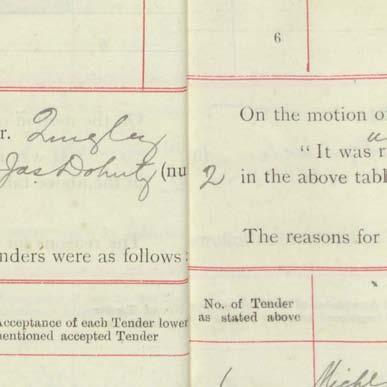 6
r. Quigley
Jas Doherty (nu
nders were as follows:
Acceptance of each Tender lower
mentioned accepted Tender
On the motion o
"It was r
2 in the above tabl
The reasons for
No. of Tender
as stated above
Michl